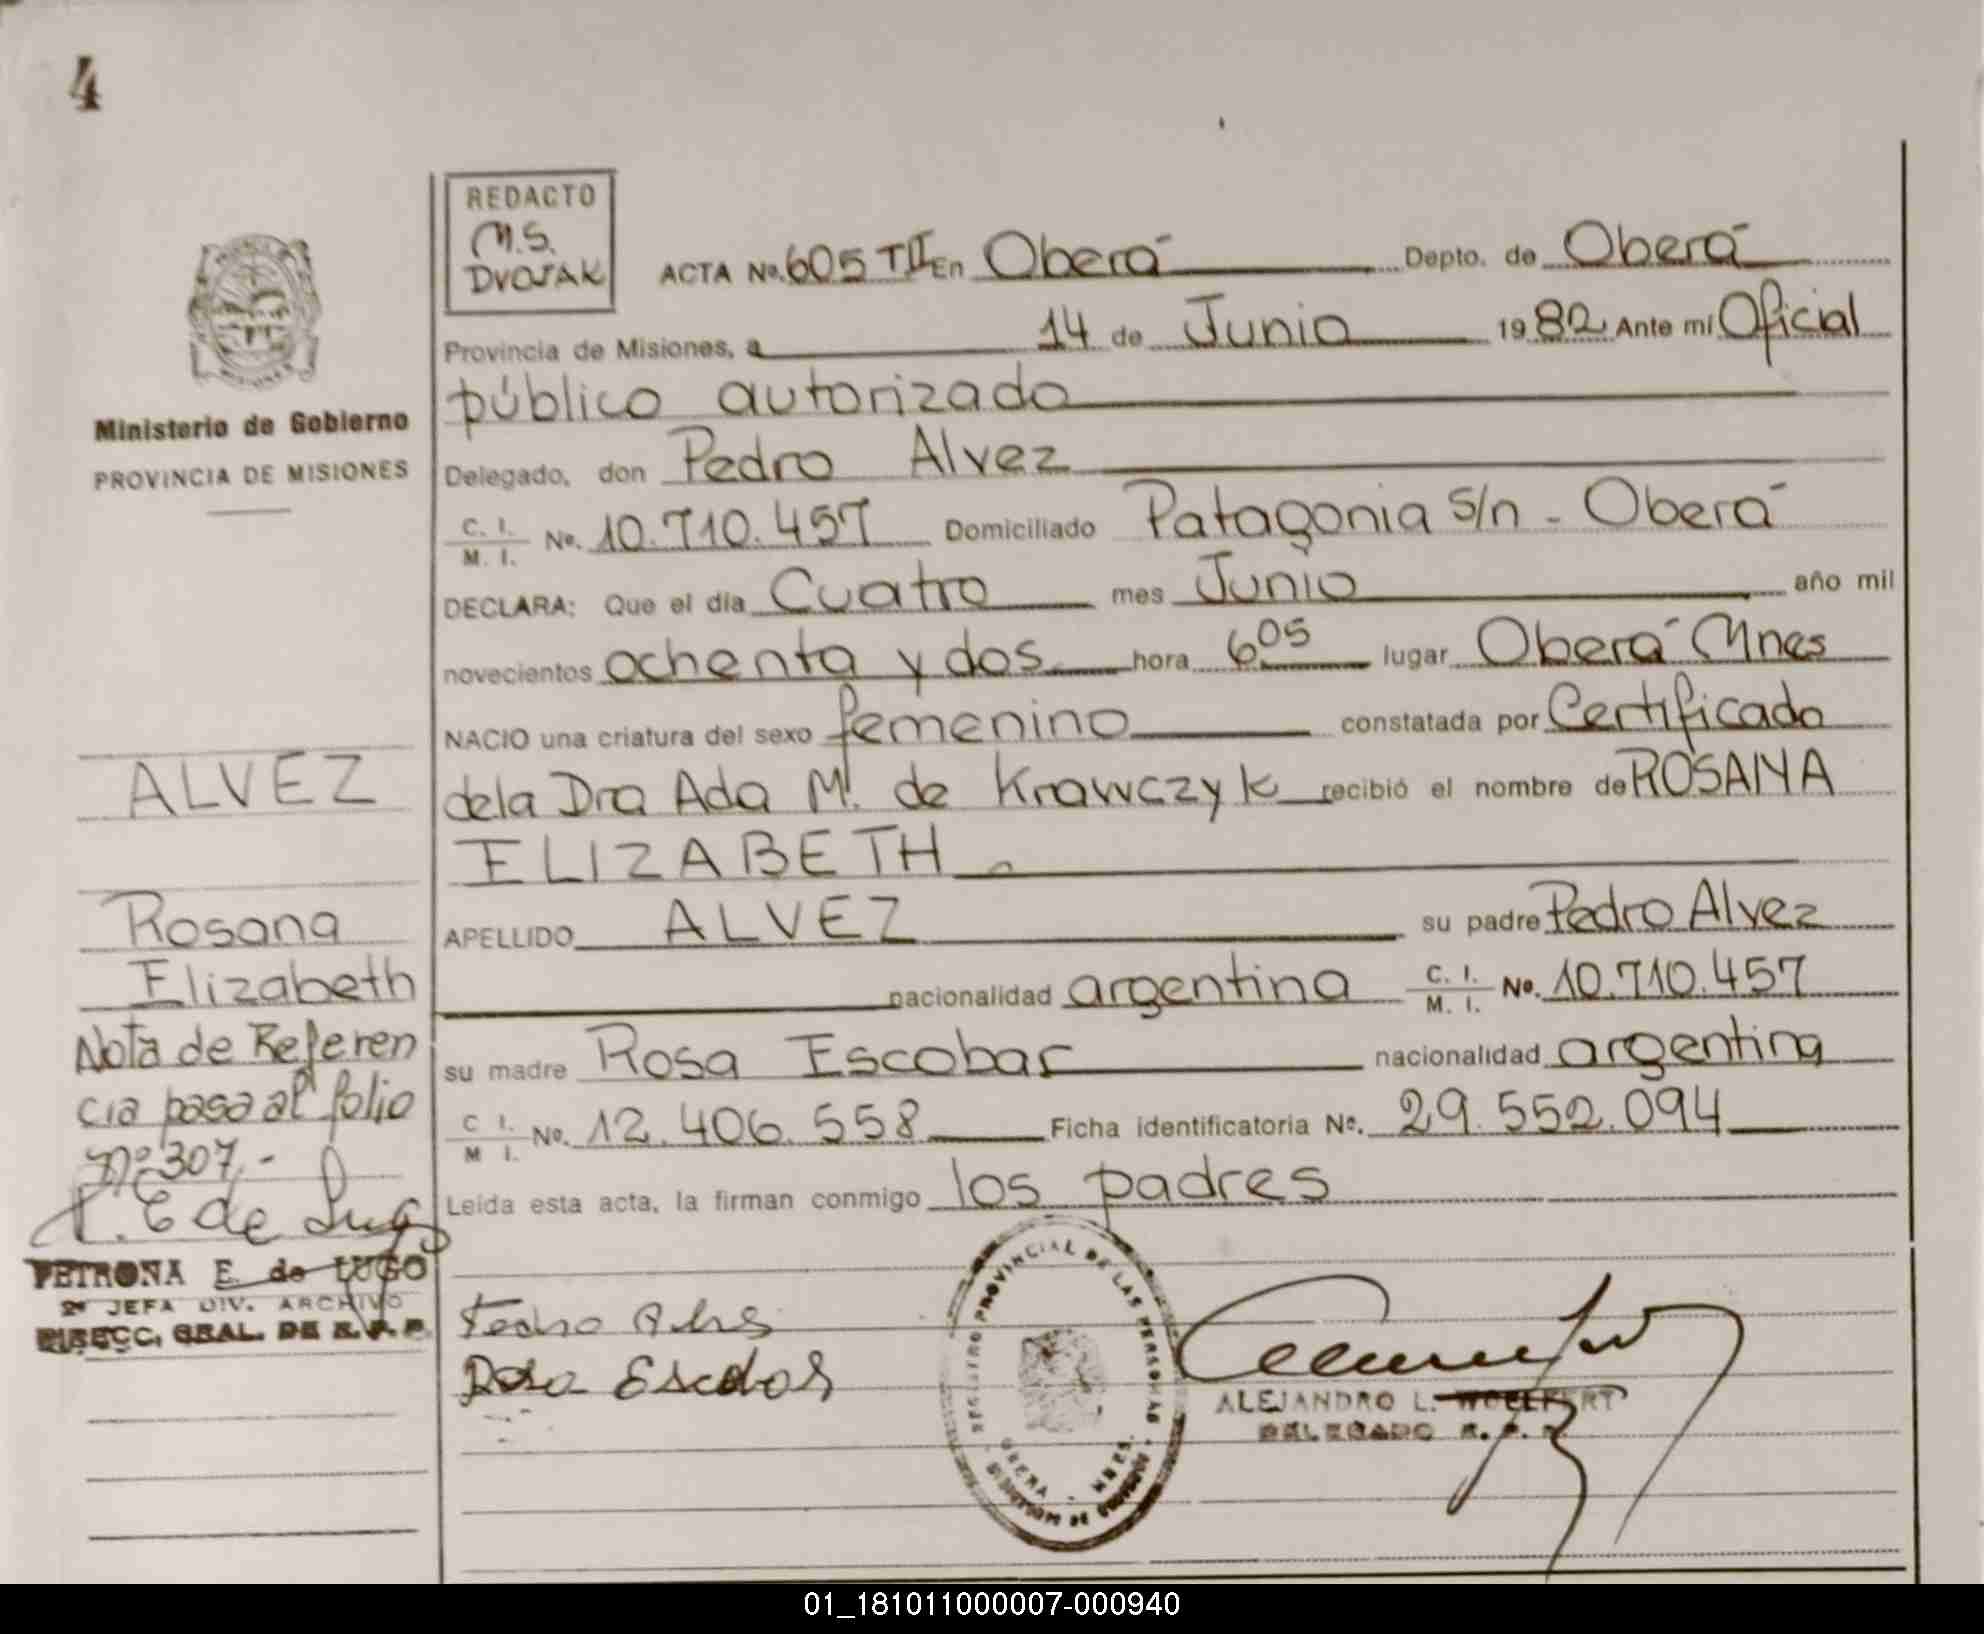 4
REDACTO
M.S.
DVORAK
ACTA No. 605 TII En Oberá Depto. de Oberá
Provincia de Misiones, a 14 de Junio 1982 Ante mí Oficial
público autorizado
Delegado, don Pedro Alvez
C. I. / M. I. No. 10.710.457 Domiciliado Patagonia s/n - Oberá
DECLARA: Que el día Cuatro mes Junio año mil
novecientos ochenta y dos hora 6 05 lugar Oberá Mnes
NACIO una criatura del sexo femenino constatada por Certificado
dela Dra Ada M. de Krawczyk recibió el nombre de ROSANA
ELIZABETH
APELLIDO ALVEZ su padre Pedro Alvez
nacionalidad argentina C. I. / M. I. No. 10.710.457
su madre Rosa Escobar nacionalidad argentina
C I. / M I. No. 12.406.558 Ficha identificatoria No. 29.552.094
Leída esta acta, la firman conmigo los padres
Ministerio de Gobierno
PROVINCIA DE MISIONES
ALVEZ
Rosana
Elizabeth
Nota de Referen
cia pasa al folio
Nº 307.-
P. E de Lugo
PETRONA E. de LUGO
2ª JEFA DIV. ARCHIVO
DIRECC. GRAL. DE R. P. P.
Rosa Escobar
REGISTRO PROVINCIAL DE LAS PERSONAS
OBERA - MNES.
ALEJANDRO L. WOELFERT
DELEGADO R. P. P.
01_181011000007-000940